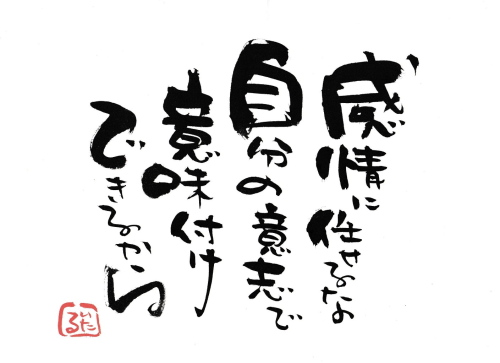 感情に任せるなよ
自分の意志で
意味付け
できるから